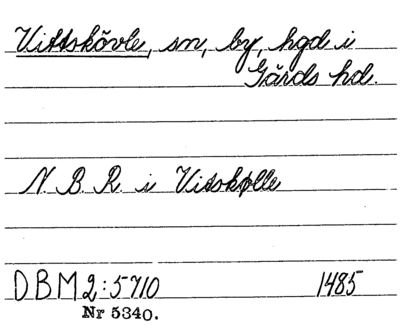 Vittskövle, sn, by, hgd i
Gärds hd.
N. B. R. i Vitskølle
DBM 2:5710 1485
Nr 5340.